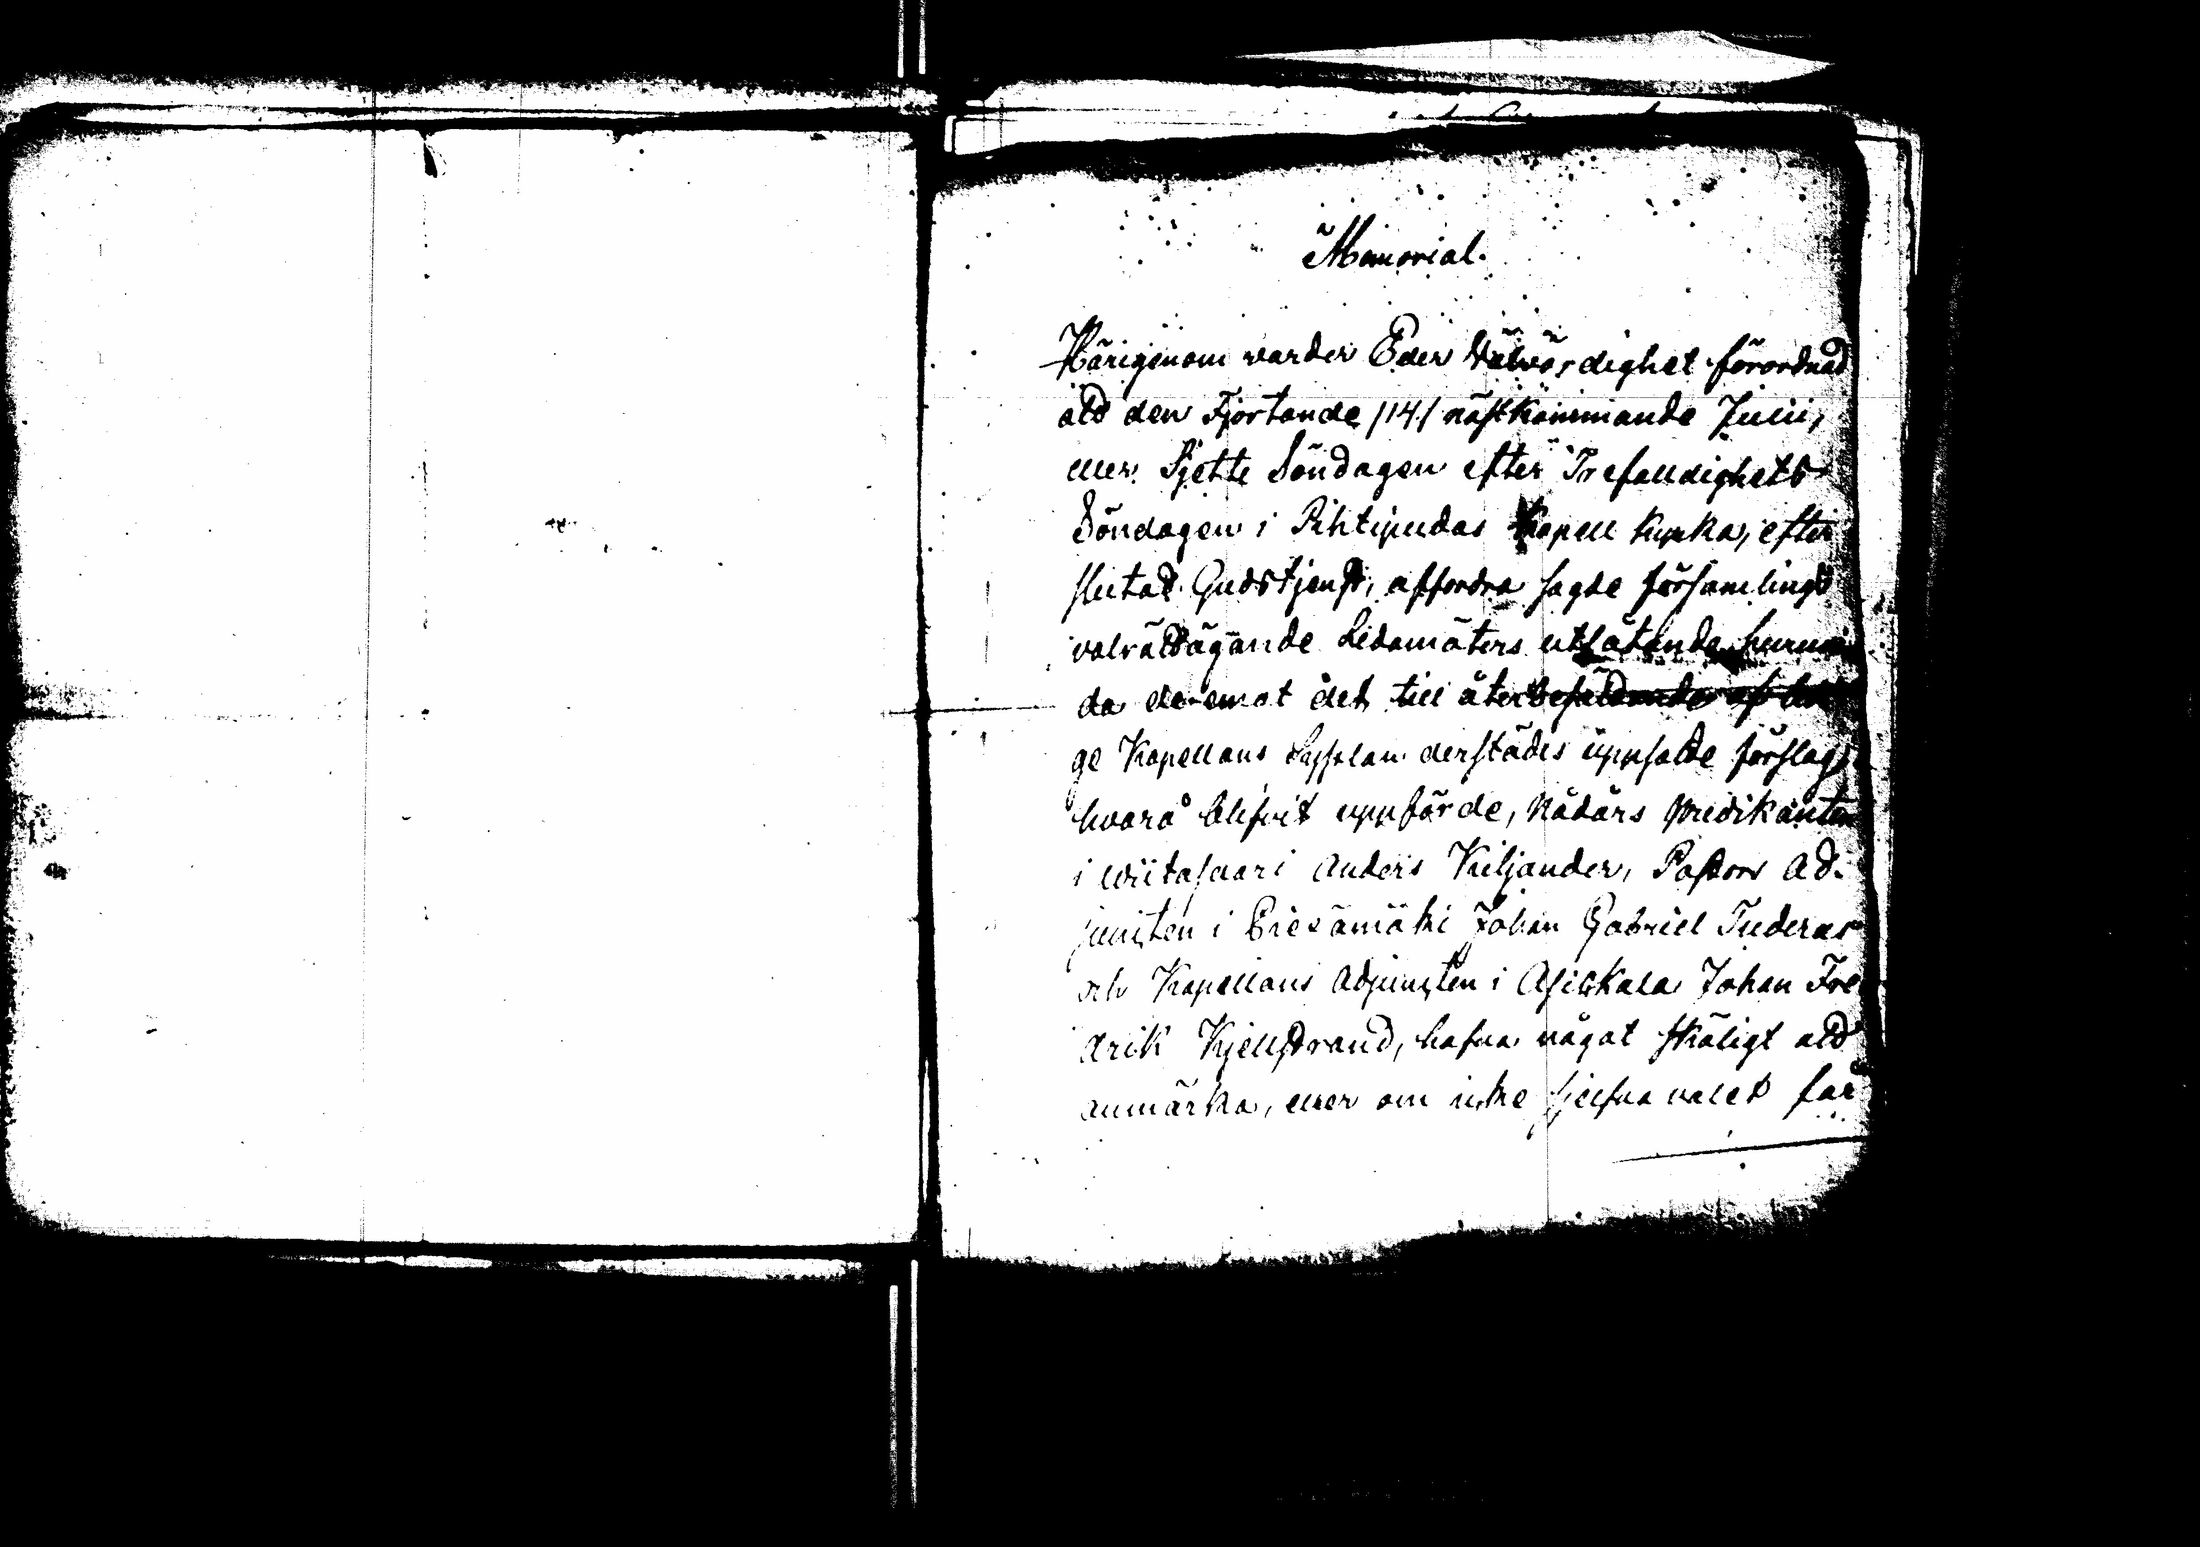 Memorial.
Härigenom warder Eder Wälwördighet förordnad
att den Fjortonde /14/ nästkommande Julii,
eller Sjette Söndagen efter Trefalldighets
Söndagen i Pihtipudas Kapell Kyrka, efter
slutad Gudstjenst, affordra sagde församlings
valrättägande Ledamöters utlåtande, huruvi
da deremot det till återbesättande af le
ge Kapellans Sysslan derstädes uppsatte förslag,
hvarå blifvit uppförde, Nådårs predikanten
i Wiitasaari Anders Kiljander, Pastors Ad-
juncten i Pielsämäki Johan Gabriel Tuderus
och Kapellans Adjuncten i Asikkala Johan Fre
drik Kjellstrand, hafva något skäligt att
anmärka, eller om icke sjelfva valet får